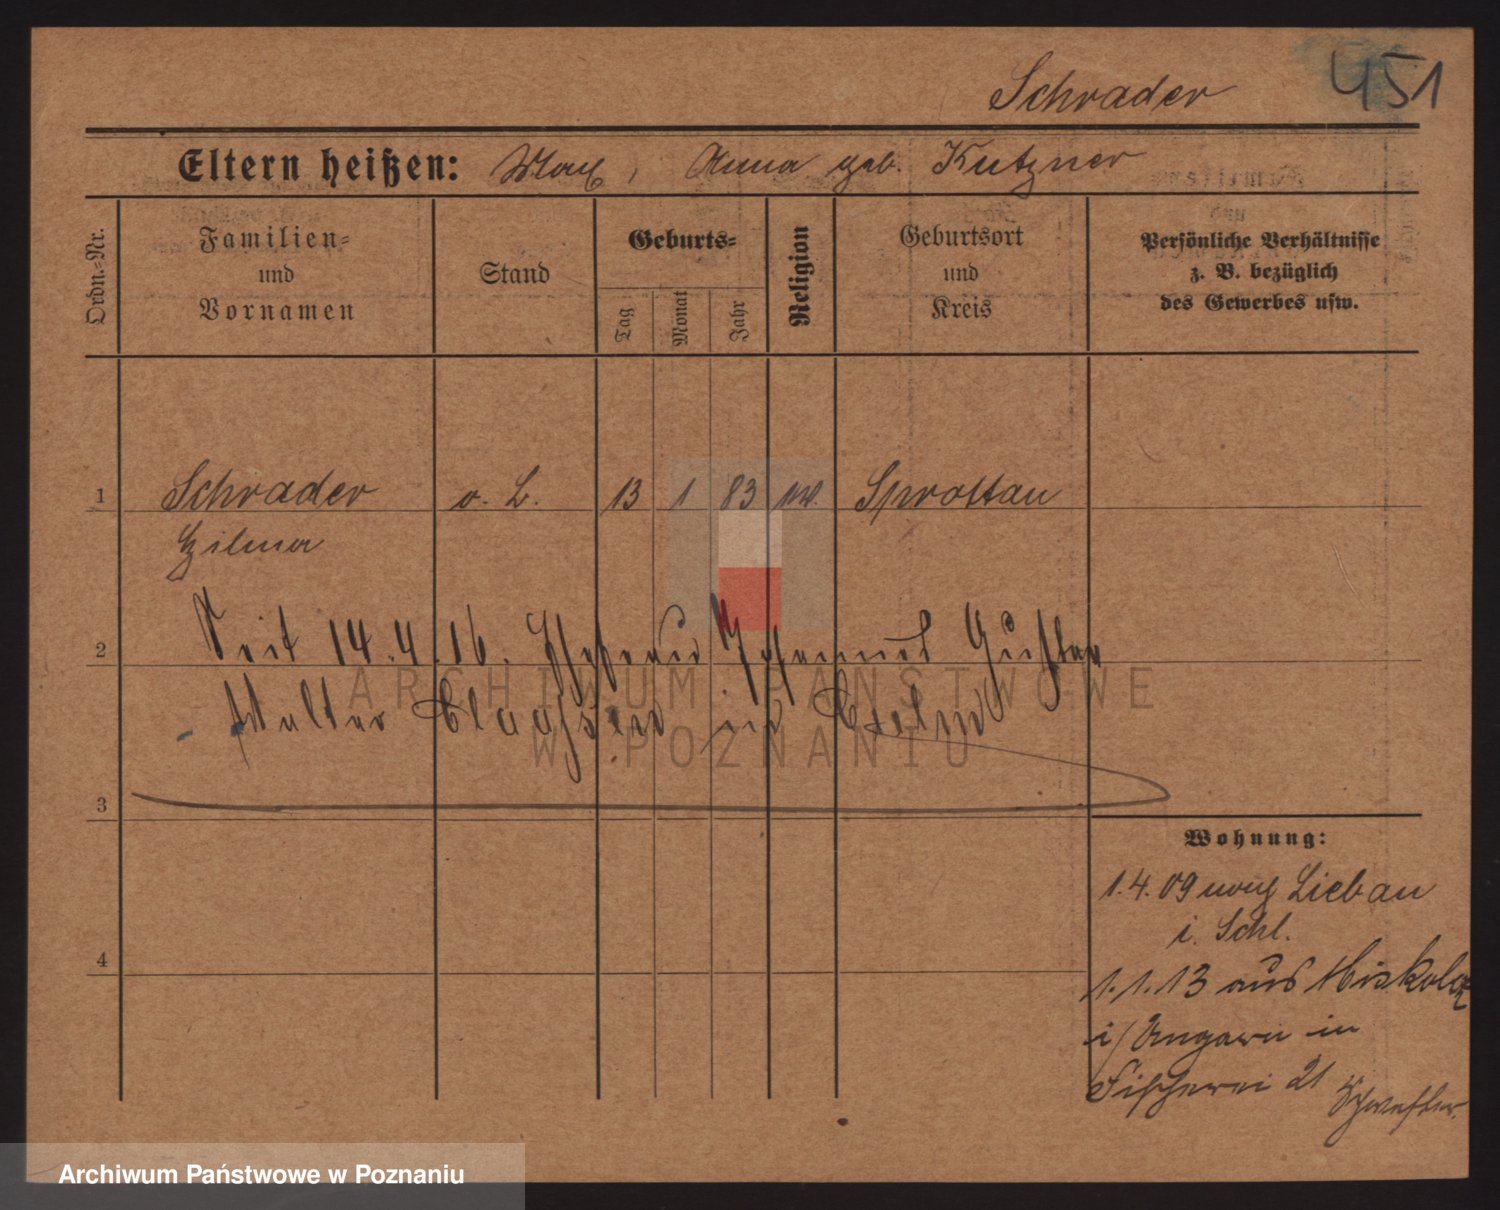 Schrader 451
Eltern heißen: Max, Anna geb. Kutzner
Ordn.-Nr.
Familien-
und
Vornamen
Stand
Geburts-
Tag
Monat
Jahr
Religion
Geburtsort
und
Kreis
Persönliche Verhältnisse
z. B. bezüglich
des Gewerbes usw.
1 Schrader o. B. 13 1 83 Sprottau
Hilma
2 Seit 14.4.16. Ehefrau Johannes Gustav
Walter in Berlin
3
Wohnung:
1.4.09 nach Liebau
i. Schl.
4
1.1.13 aus Miskolcz
i/Ungarn in
Fischerei 21 Schwester.
ARCHIWUM PAŃSTWOWE
W POZNANIU
Archiwum Państwowe w Poznaniu